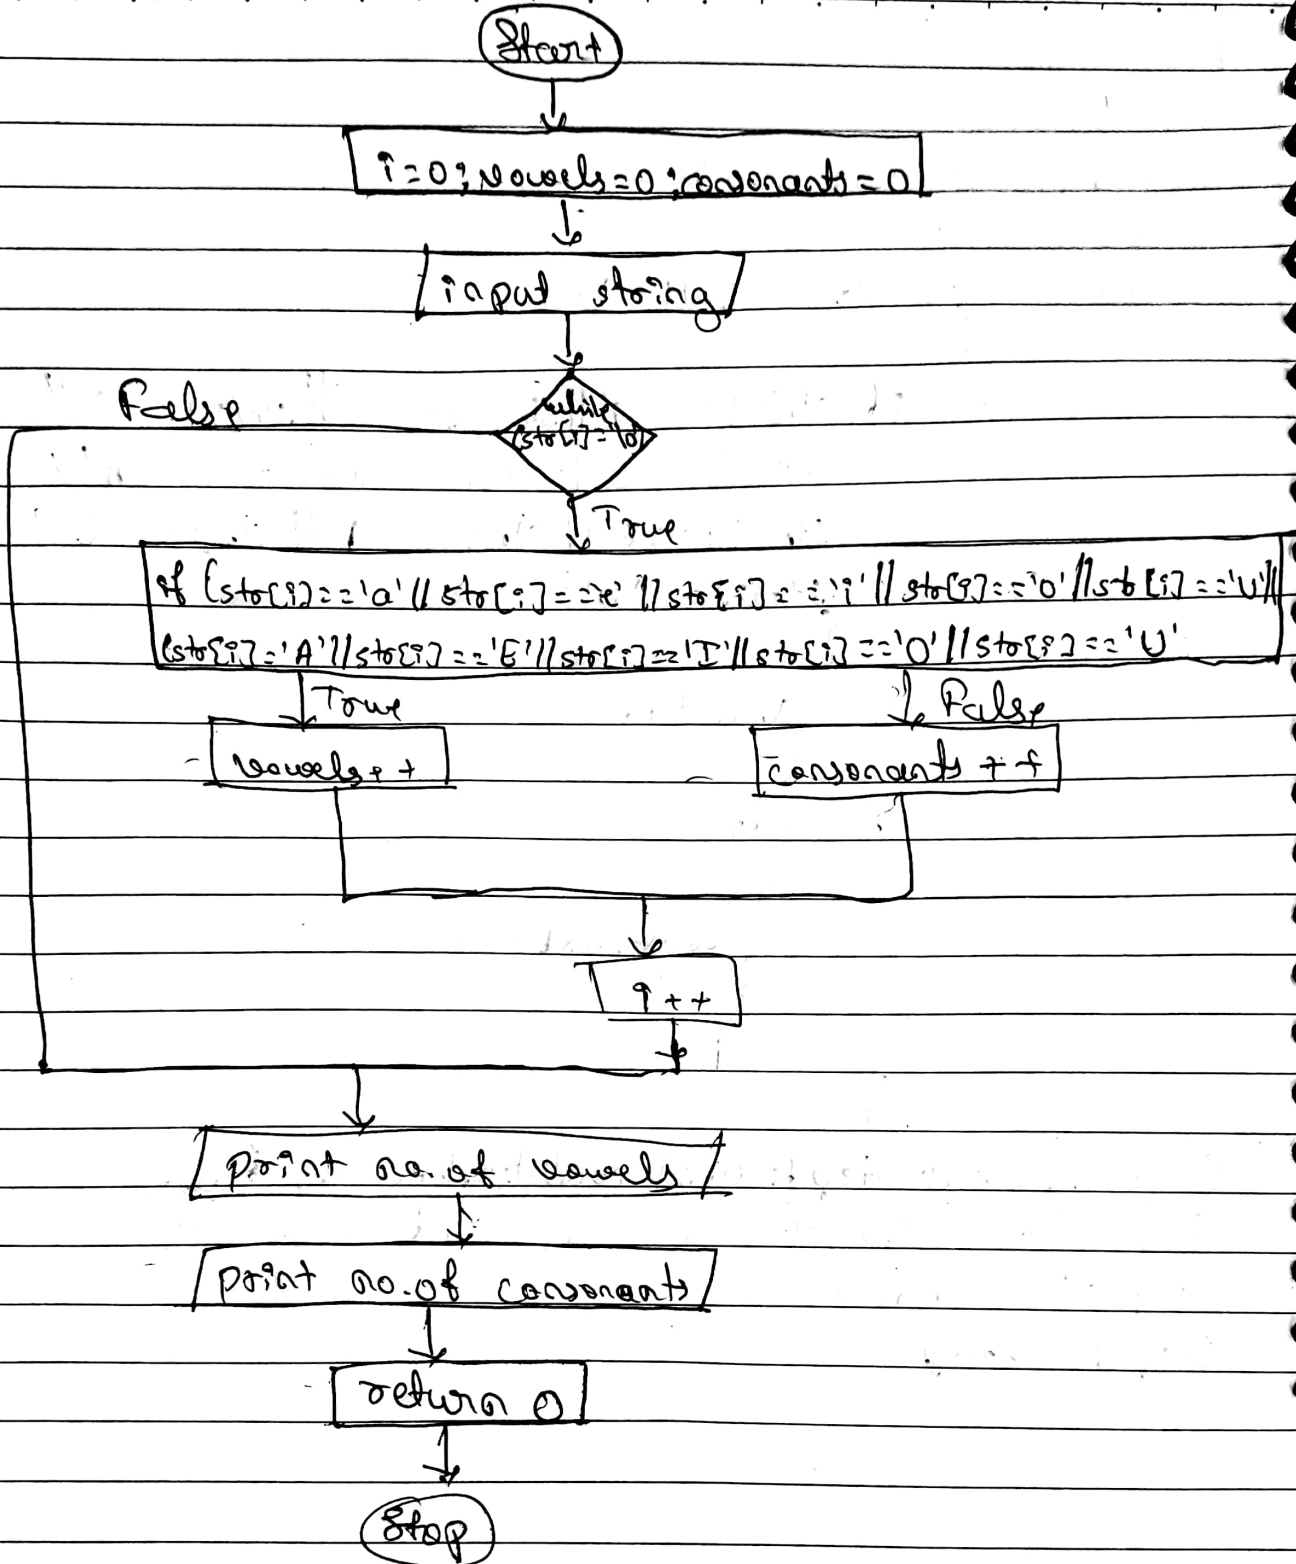 Start
i=0; vowels=0; consonants=0
input string
False
while
(str[i]='\0)
True
if (str[i]=='a'//str[i]=='e'//str[i]=='i'//str[i]=='o'//str[i]=='U'//
(str[i]='A'//str[i]=='E'//str[i]=='I'//str[i]=='O'//str[i]=='U'
True
False
vowels++
consonants ++
i++
print no. of vowels
print no. of consonants
return 0
Stop